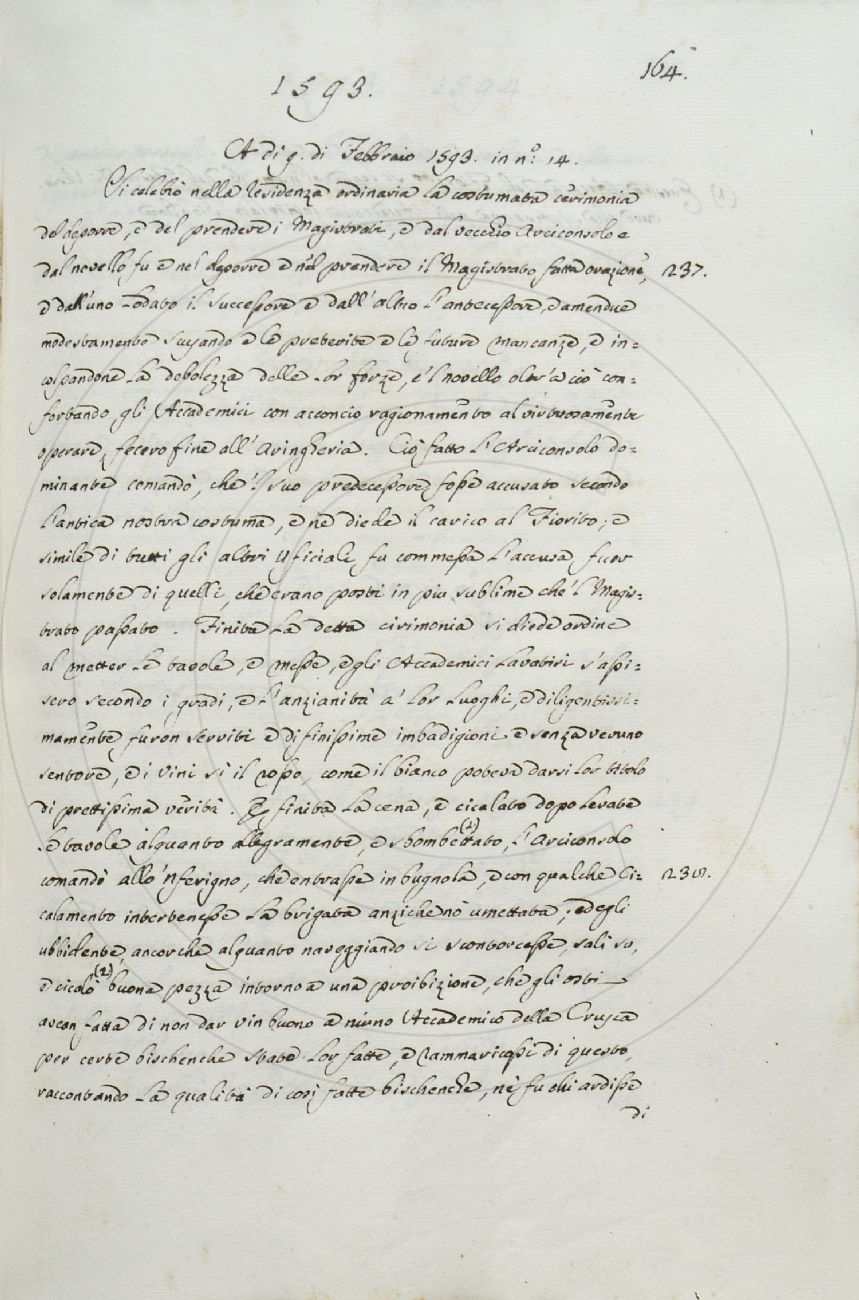 164.
1593.
A di 9. di Febbraio 1593. in n.º 14.
Si celebrò nella residenza ordinaria la costumata cerimonia
del deporre, e del prendere i Magistrati, e dal vecchio Arciconsolo e
dal novello fu e nel deporre e nel prendere il Magistrato fatta orazione, 237.
e dall'uno lodato il successore e dall'altro l'antecessore, e amendue
modestamente scusando e le preterite e le future mancanze, e in=
colpandone la debolezza delle lor forze, e 'l novello oltr'a ciò con=
fortando gli Accademici con acconcio ragionamento al virtuosamente
operare, fecero fine all'aringheria. Ciò fatto l'Arciconsolo do=
minante comandò, che 'l suo predecessore fosse accusato secondo
l'antica nostra costuma, e ne diede il carico al Fiorito; e
simile di tutti gli altri Uficiali fu commessa l'accusa fuor
solamente di quelli, che erano posti in piu sublime che 'l Magis=
trato passato. Finita la detta cirimonia si diede ordine
al metter le tavole, e messe, e gli Accademici lavatisi s'assi=
sero secondo i gradi, e l'anzianità a' lor luoghi, e diligentissi=
mamente furon serviti e di finissime imbadigioni e senza veruno
sentore, e i vini sì il rosso, come il bianco poteva darsi lor titolo
di prettissima verità. E finita la cena, e cicalato dopo levate
le tavole alquanto allegramente, e sbombettato, (1) l'Arciconsolo
comandò allo 'nferigno, che entrasse in bugnola, e con qualche ci= 238.
calamento intertenesse la brigata anzichenò umettata; ed egli
ubbidente, ancorche alquanto nareggiando si scontorcesse, salì su,
e cicalò (2) buona pezza intorno a una proibizione, che gli osti
avean fatta di non dar vin buono a niuno Accademico della Crusca
per certe bischenche state lor fatte, e rammaricossi di questo,
raccontando la qualità di così fatte bischenche, nè fu chi ardisse
di